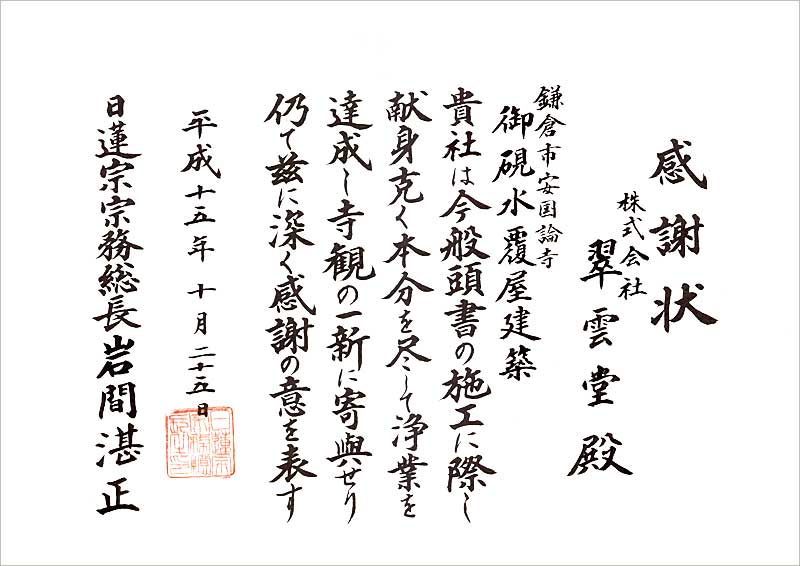 感謝状
株式会社
翠雲堂殿
鎌倉市安国論寺
御硯水覆屋建築
貴社は今般頭書の施工に際し
献身克く本分を尽して浄業を
達成し寺観の一新に寄與せり
仍て茲に深く感謝の意を表す
平成十五年十月二十五日
日蓮宗宗務総長岩間湛正